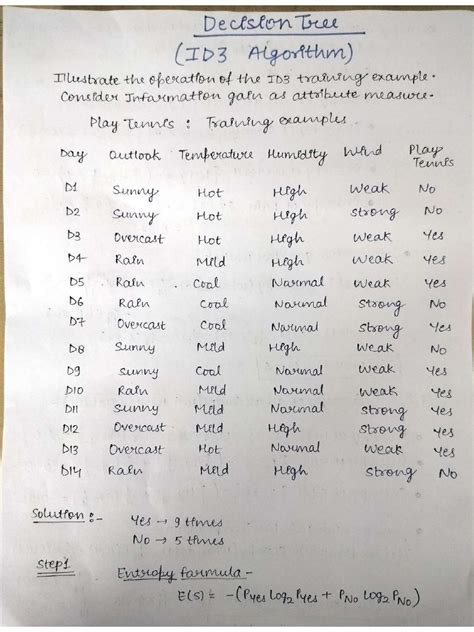 Decision Tree
(ID3 Algorithm)
Illustrate the operation of the ID3 training example.
Consider Information gain as attribute measure.
Play Tennis : Training examples
Day Outlook Temperature Humidity Wind Play Tennis
D1 Sunny Hot High Weak No
D2 Sunny Hot High Strong No
D3 Overcast Hot High Weak Yes
D4 Rain Mild High Weak Yes
D5 Rain Cool Normal Weak Yes
D6 Rain Cool Normal Strong No
D7 Overcast Cool Normal Strong Yes
D8 Sunny Mild High Weak No
D9 Sunny Cool Normal Weak Yes
D10 Rain Mild Normal Weak Yes
D11 Sunny Mild Normal Strong Yes
D12 Overcast Mild High Strong Yes
D13 Overcast Hot Normal Weak Yes
D14 Rain Mild High Strong No
Solution :-
Yes → 9 times
No → 5 times
Step1
Entropy formula -
E(S) = -(PYes Log2 PYes + PNo Log2 PNo)